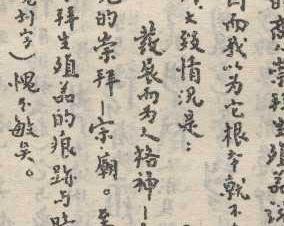 崇拜生殖器说
因而我以为它根本就不
大致情况是：
發展而为人格神—
的崇拜—宗庙。至
拜生殖器的痕跡与
字）愧不敏矣。